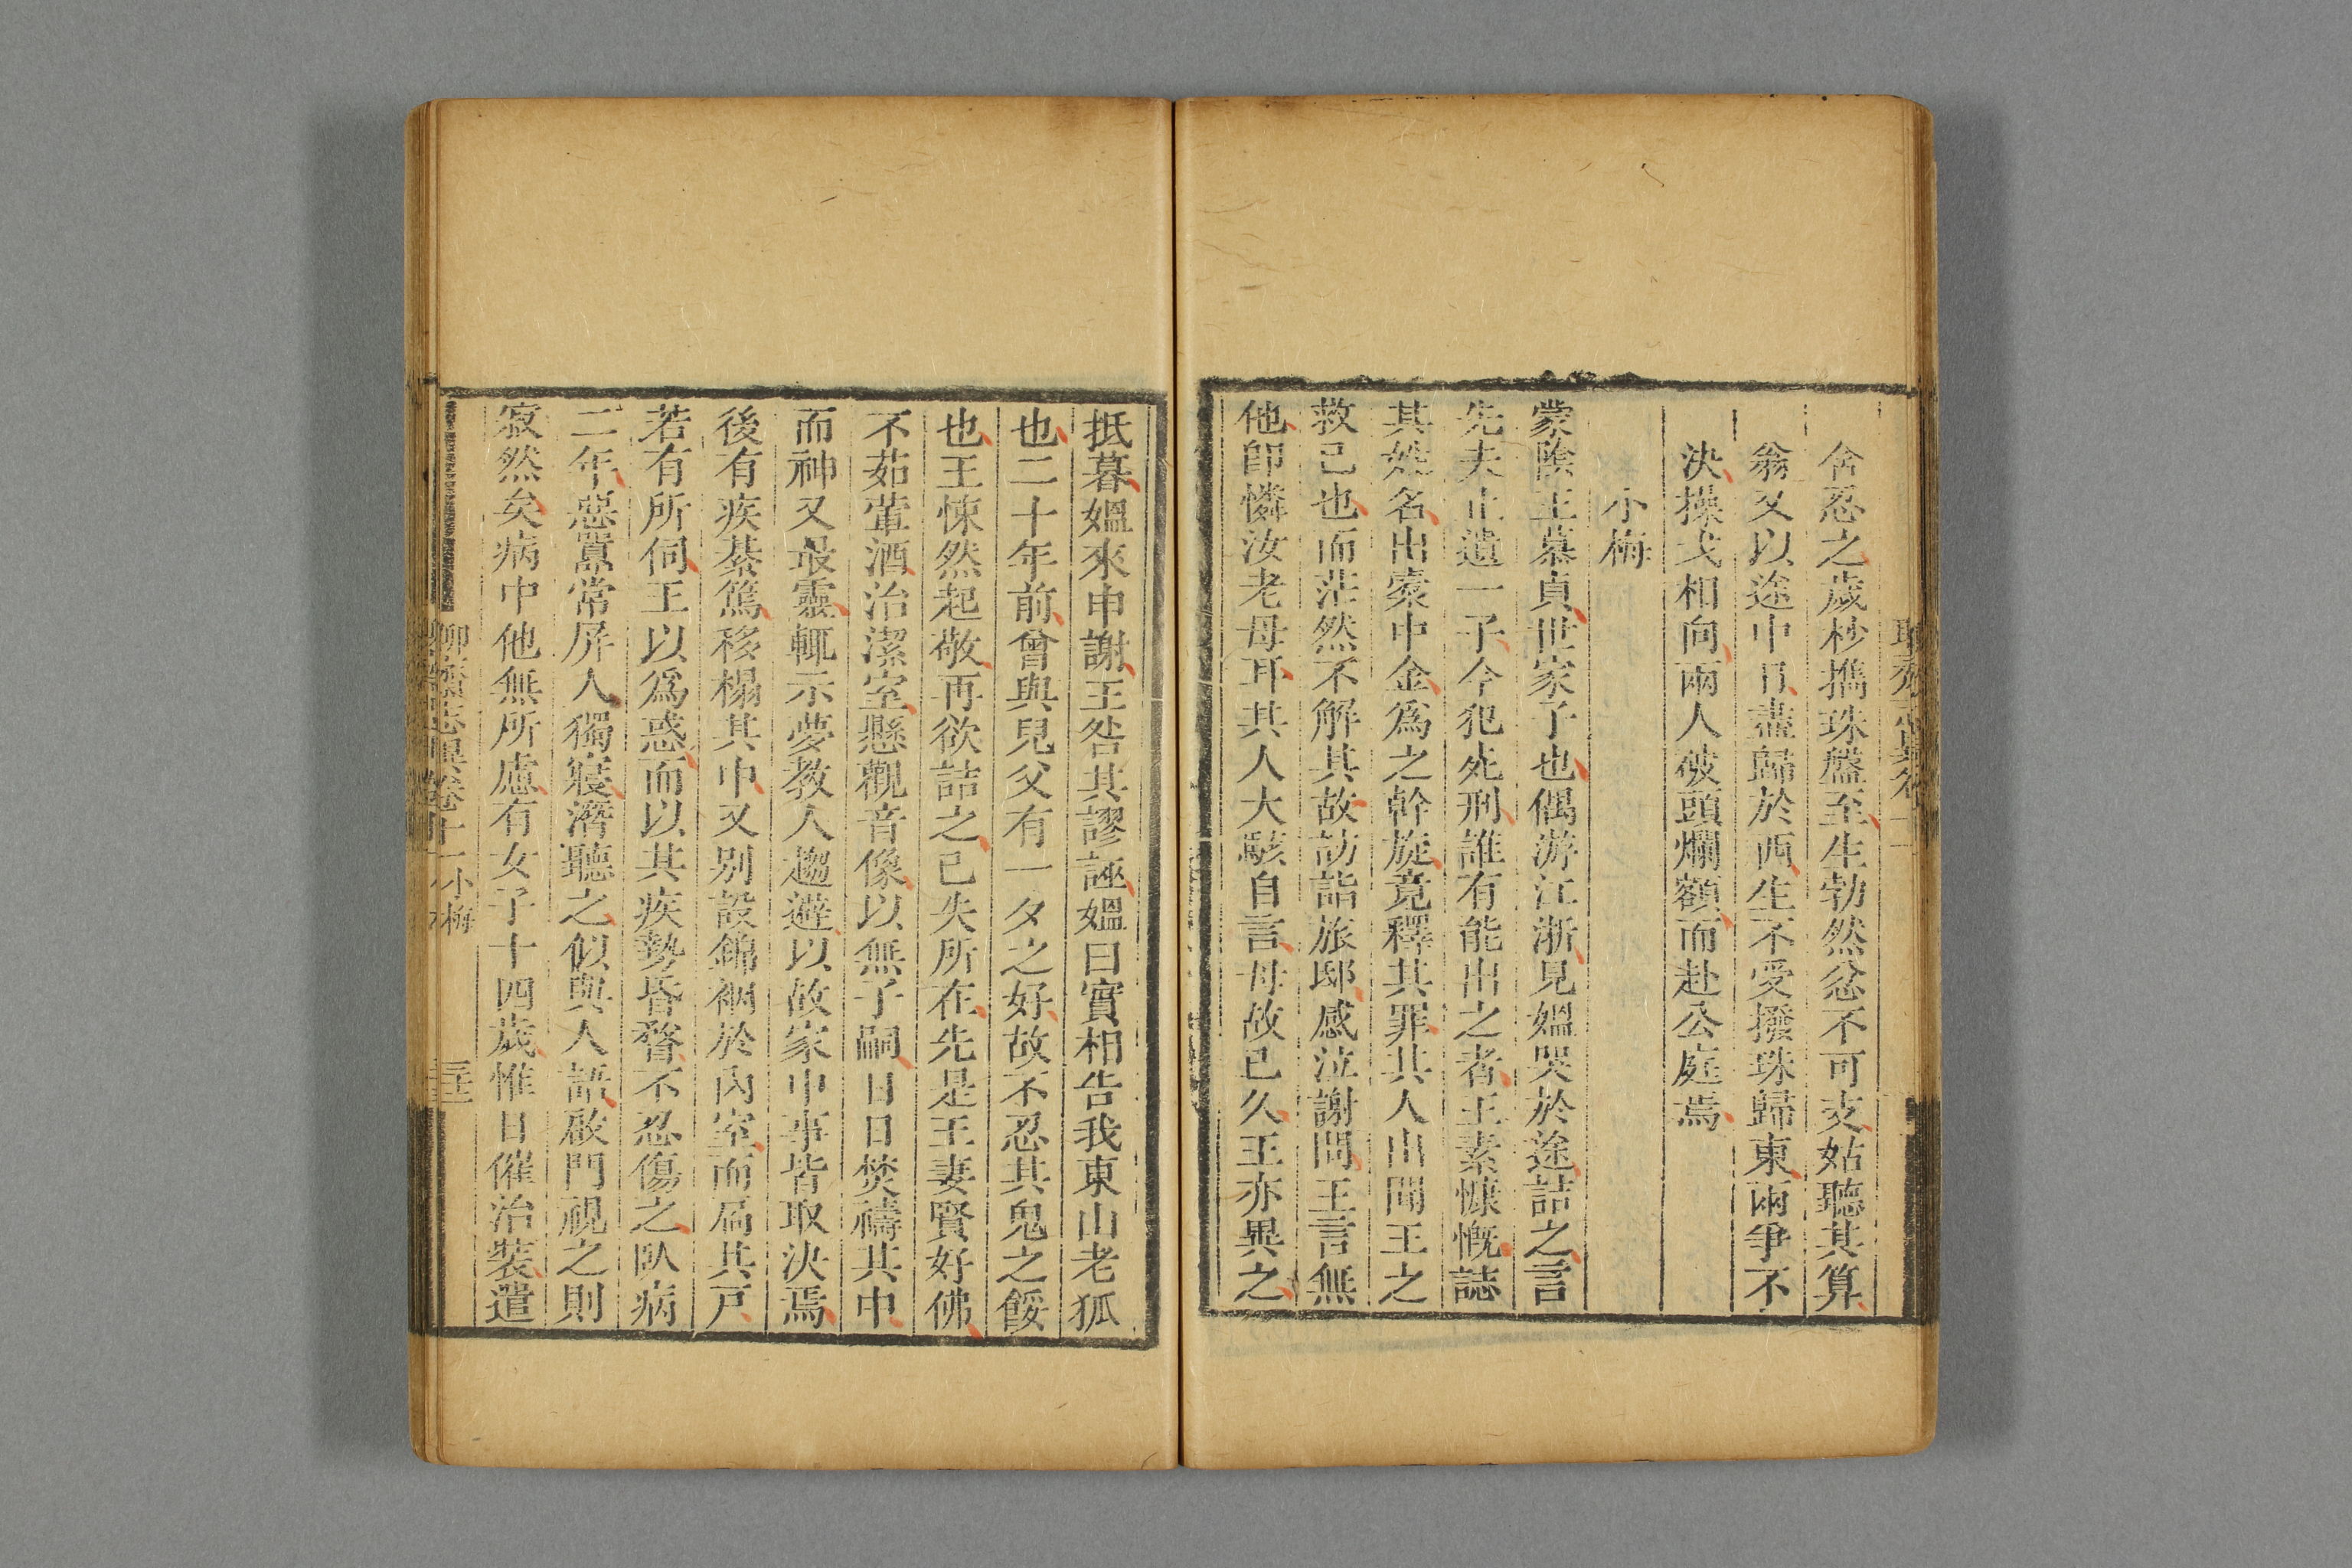 含忍之歲杪攜珠盤至生勃然忿不可支姑聽其算
翁又以途中百盡歸於西生不受撥珠歸東兩爭不
決操戈相向兩人破頭爛額而赴公庭焉
小梅
蒙陰王慕貞世家子也偶游江浙見媼哭於途詰之言
先夫止遺一子今犯死刑誰有能出之者王素慷慨誌
其姓名出橐中金爲之斡旋竟釋其罪其人出聞王之
救己也而茫然不解其故訪詣旅邸感泣謝問王言無
他卽憐汝老母耳其人大駭自言母故已久王亦異之
抵暮媼來申謝王咎其謬誣媼曰實相告我東山老狐
也二十年前曾與兒父有一夕之好故不忍其鬼之餒
也王悚然起敬再欲詰之已失所在先是王妻賢好佛
不茹葷酒治潔室懸觀音像以無子嗣日日焚禱其中
而神又最靈輒示夢教人趨避以故家中事皆取決焉
後有疾綦篤移榻其中又別設錦裀於內室而扃其戶
若有所伺王以爲惑而以其疾勢昏瞀不忍傷之臥病
二年惡囂常屏人獨寢潛聽之似與人語啟門視之則
寂然矣病中他無所慮有女子十四歲惟日催治裝遣
聊齋志異卷十一小梅